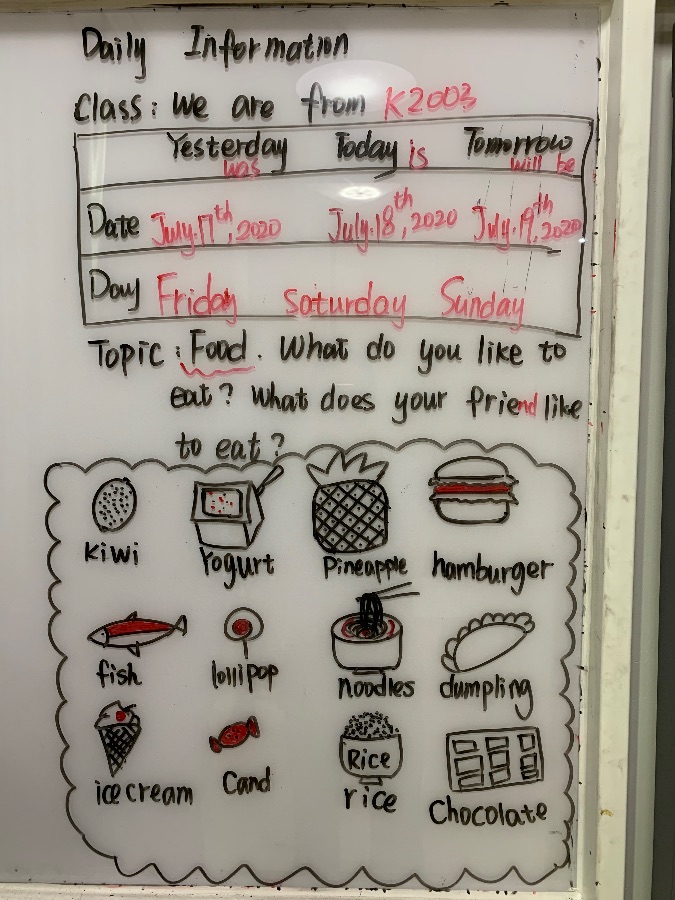 Daily Information
Class: We are from K2003
Yesterday was Today is Tomorrow will be
Date July.17th,2020 July.18th,2020 July.19th,2020
Day Friday Saturday Sunday
Topic: Food. What do you like to
eat? What does your friend like
to eat?
kiwi Yogurt Pineapple hamburger
fish lollipop noodles dumpling
Rice
ice cream Cand rice Chocolate